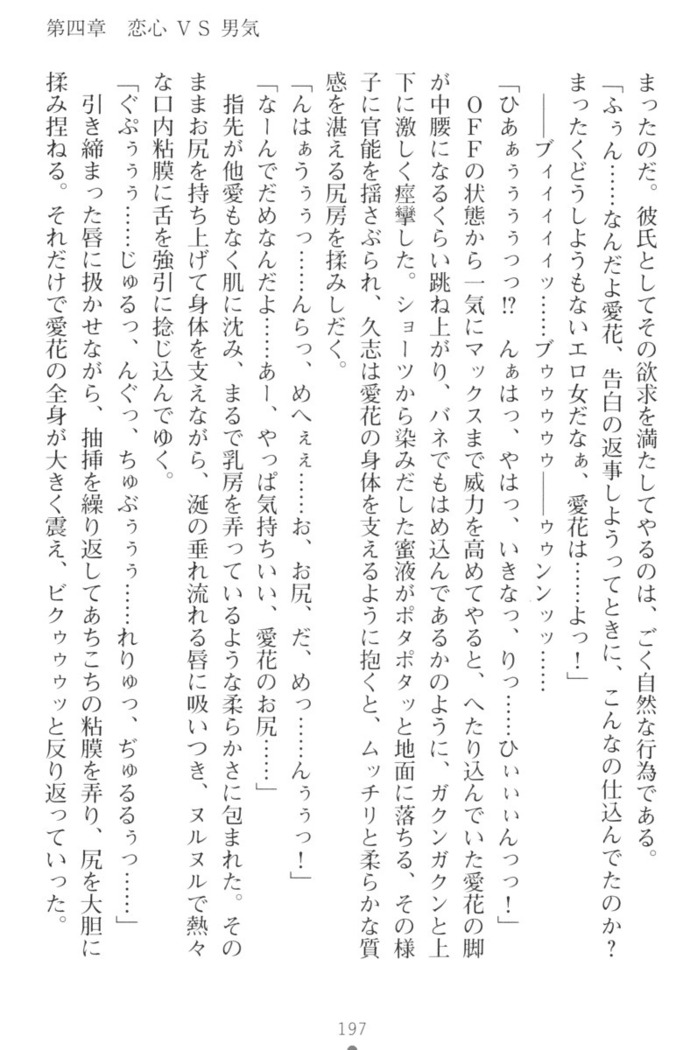 第四章　恋心 VS 男気
まったのだ。彼氏としてその欲求を満たしてやるのは、ごく自然な行為である。
「ふぅん……なんだよ愛花、告白の返事しようってときに、こんなの仕込んでたのか？
まったくどうしようもないエロ女だなぁ、愛花は……よっ！」
――ブィィィィィッ……ブゥゥゥゥゥ――ゥゥンンッッ……
「ひあぁぅぅぅぅっっ!?　んぁはっ、やはっ、いきなっ、りっ……ひぃぃぃんっっ！」
OFFの状態から一気にマックスまで威力を高めてやると、へたり込んでいた愛花の脚
が中腰になるくらい跳ね上がり、バネでもはめ込んであるかのように、ガクンガクンと上
下に激しく痙攣した。ショーツから染みだした蜜液がポタポタッと地面に落ちる、その様
子に官能を揺さぶられ、久志は愛花の身体を支えるように抱くと、ムッチリと柔らかな質
感を湛える尻房を揉みしだく。
「んはぁぅぅぅっ……んらっ、めへぇぇ……お、お尻、だ、めっ……んぅぅっ！」
「なーんでだめなんだよ……あー、やっぱ気持ちいい、愛花のお尻……」
指先が他愛もなく肌に沈み、まるで乳房を弄っているような柔らかさに包まれた。その
ままお尻を持ち上げて身体を支えながら、涎の垂れ流れる唇に吸いつき、ヌルヌルで熱々
な口内粘膜に舌を強引に捻じ込んでゆく。
「ぐぷぅぅぅ……じゅるっ、んぐっ、ちゅぶぅぅぅ……れりゅっ、ぢゅるるぅっ……」
引き締まった唇に扱かせながら、抽挿を繰り返してあちこちの粘膜を弄り、尻を大胆に
揉み捏ねる。それだけで愛花の全身が大きく震え、ビクゥゥゥッと反り返っていった。
197